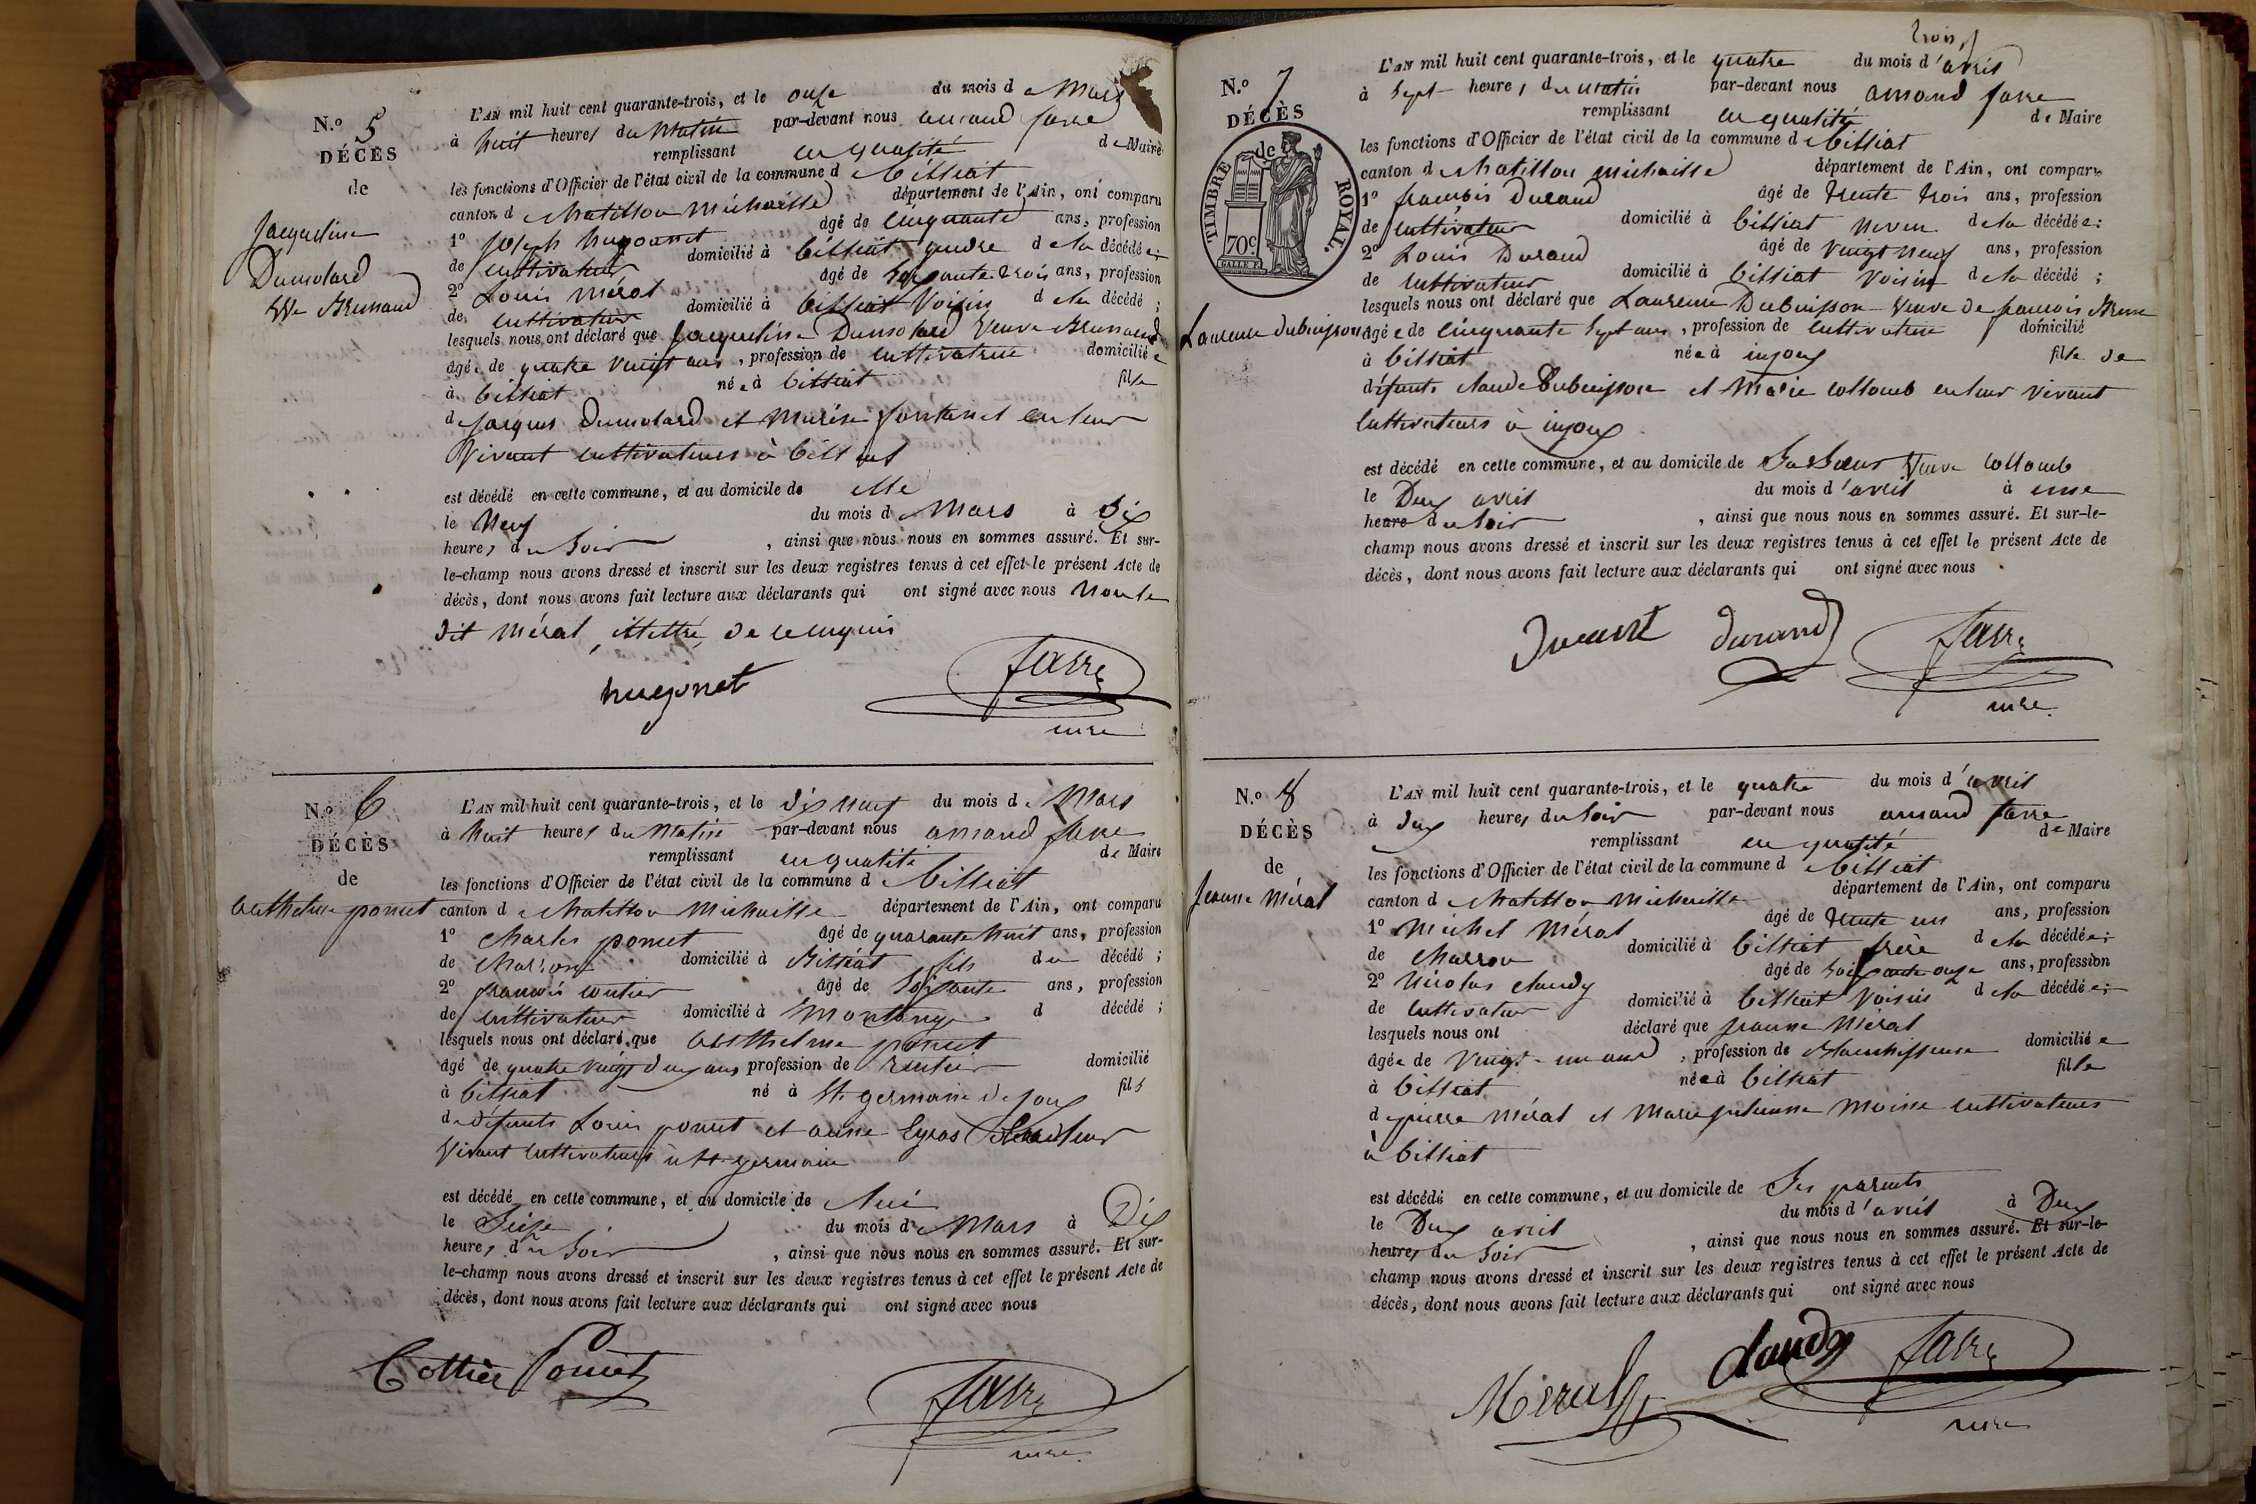 N.o 5
DÉCÈS
de
Jacqueline
Dumolard
Vve Brunaud
L'AN mil huit cent quarante-trois, et le onze du mois de Mars
à huit heures du Matin par-devant nous amand favre
remplissant en qualité de Maire
les fonctions d'Officier de l'état civil de la commune de billiat
canton de chatillon Michaille département de l'Ain, ont comparu
1o joseph hugonnet âgé de cinquante ans, profession
de cultivateur domicilié à billiat gendre de la décédée;
2o Louis Méral âgé de soixante trois ans, profession
de cultivateur domicilié à billiat Voisin de la décédé;
lesquels nous ont déclaré que jacqueline Dumolard Veuve Brunaud
âgée de quatre vingt ans, profession de cultivatrice domiciliée
à billiat née à billiat fille
de jacques Dumolard et Marie fontanel en leur
Vivant cultivateurs à billiat
est décédé en cette commune, et au domicile de elle
le Neuf du mois de Mars à Six
heures du Soir, ainsi que nous nous en sommes assuré. Et sur-
le-champ nous avons dressé et inscrit sur les deux registres tenus à cet effet le présent Acte de
décès, dont nous avons fait lecture aux déclarants qui ont signé avec nous Non le
dit Méral, illettré, de ce enquis
hugonet favre
mre
N.o 6
DÉCÈS
de
anthelme poncet
L'AN mil huit cent quarante-trois, et le dix neuf du mois de Mars
à huit heures du Matin par-devant nous amand favre
remplissant en qualité de Maire
les fonctions d'Officier de l'état civil de la commune de billiat
canton de chatillon Michaille département de l'Ain, ont comparu
1o charles poncet âgé de quarante huit ans, profession
de charron domicilié à billiat fils du décédé;
2o françois cottier âgé de soixante ans, profession
de cultivateur domicilié à Montange d décédé;
lesquels nous ont déclaré que anthelme poncet
âgé de quatre vingt deux ans profession de rentier domicilié
à billiat né à St. germain de joux fils
de défunts Louis poncet et anne en leur
Vivant cultivateurs à St. germain
est décédé en cette commune, et au domicile de lui
le Seize du mois de Mars à Dix
heures du Soir, ainsi que nous nous en sommes assuré. Et sur-
le-champ nous avons dressé et inscrit sur les deux registres tenus à cet effet le présent Acte de
décès, dont nous avons fait lecture aux déclarants qui ont signé avec nous
Cottier Poncet favre
mre
N.o 7
DÉCÈS
de
TIMBRE ROYAL.
70c
Laurence Dubuisson
trois
L'AN mil huit cent quarante-trois, et le quatre du mois d'avril
à Sept heures du matin par-devant nous amand favre
remplissant en qualité de Maire
les fonctions d'Officier de l'état civil de la commune de billiat
canton de chatillon michaille département de l'Ain, ont comparu
1o françois Durand âgé de trente trois ans, profession
de cultivateur domicilié à billiat neveu de la décédée;
2o Louis Durand âgé de vingt neuf ans, profession
de cultivateur domicilié à billiat Voisin de la décédé;
lesquels nous ont déclaré que Laurence Dubuisson Veuve de françois
âgée de cinquante sept ans, profession de cultivatrice domicilié
à billiat née à injoux fille de
défunts claude Dubuisson et Marie collomb en leur vivant
cultivateurs à injoux
est décédé en cette commune, et au domicile de Sa Soeur Veuve collomb
le Deux avril du mois d'avril à onze
heure du Soir, ainsi que nous nous en sommes assuré. Et sur-le-
champ nous avons dressé et inscrit sur les deux registres tenus à cet effet le présent Acte de
décès, dont nous avons fait lecture aux déclarants qui ont signé avec nous
durand favre
mre
N.o 8
DÉCÈS
de
Jeanne Méral
L'AN mil huit cent quarante-trois, et le quatre du mois d'avril
à deux heures du soir par-devant nous amand favre
remplissant en qualité de Maire
les fonctions d'Officier de l'état civil de la commune de billiat
canton de chatillon Michaille département de l'Ain, ont comparu
1o Michel Méral âgé de trente un ans, profession
de charron domicilié à billiat frère de la décédée;
2o Nicolas claudy âgé de soixante onze ans, profession
de cultivateur domicilié à billiat Voisin de la décédée;
lesquels nous ont déclaré que jeanne Méral
âgée de vingt un ans, profession de blanchisseuse domiciliée
à billiat née à billiat fille
de pierre Méral et Marie julienne Moine cultivateurs
à billiat
est décédé en cette commune, et au domicile de Ses parents
le Deux avril du mois d'avril à Deux
heures du Soir, ainsi que nous nous en sommes assuré. Et sur-le-
champ nous avons dressé et inscrit sur les deux registres tenus à cet effet le présent Acte de
décès, dont nous avons fait lecture aux déclarants qui ont signé avec nous
Méral claudy favre
mre